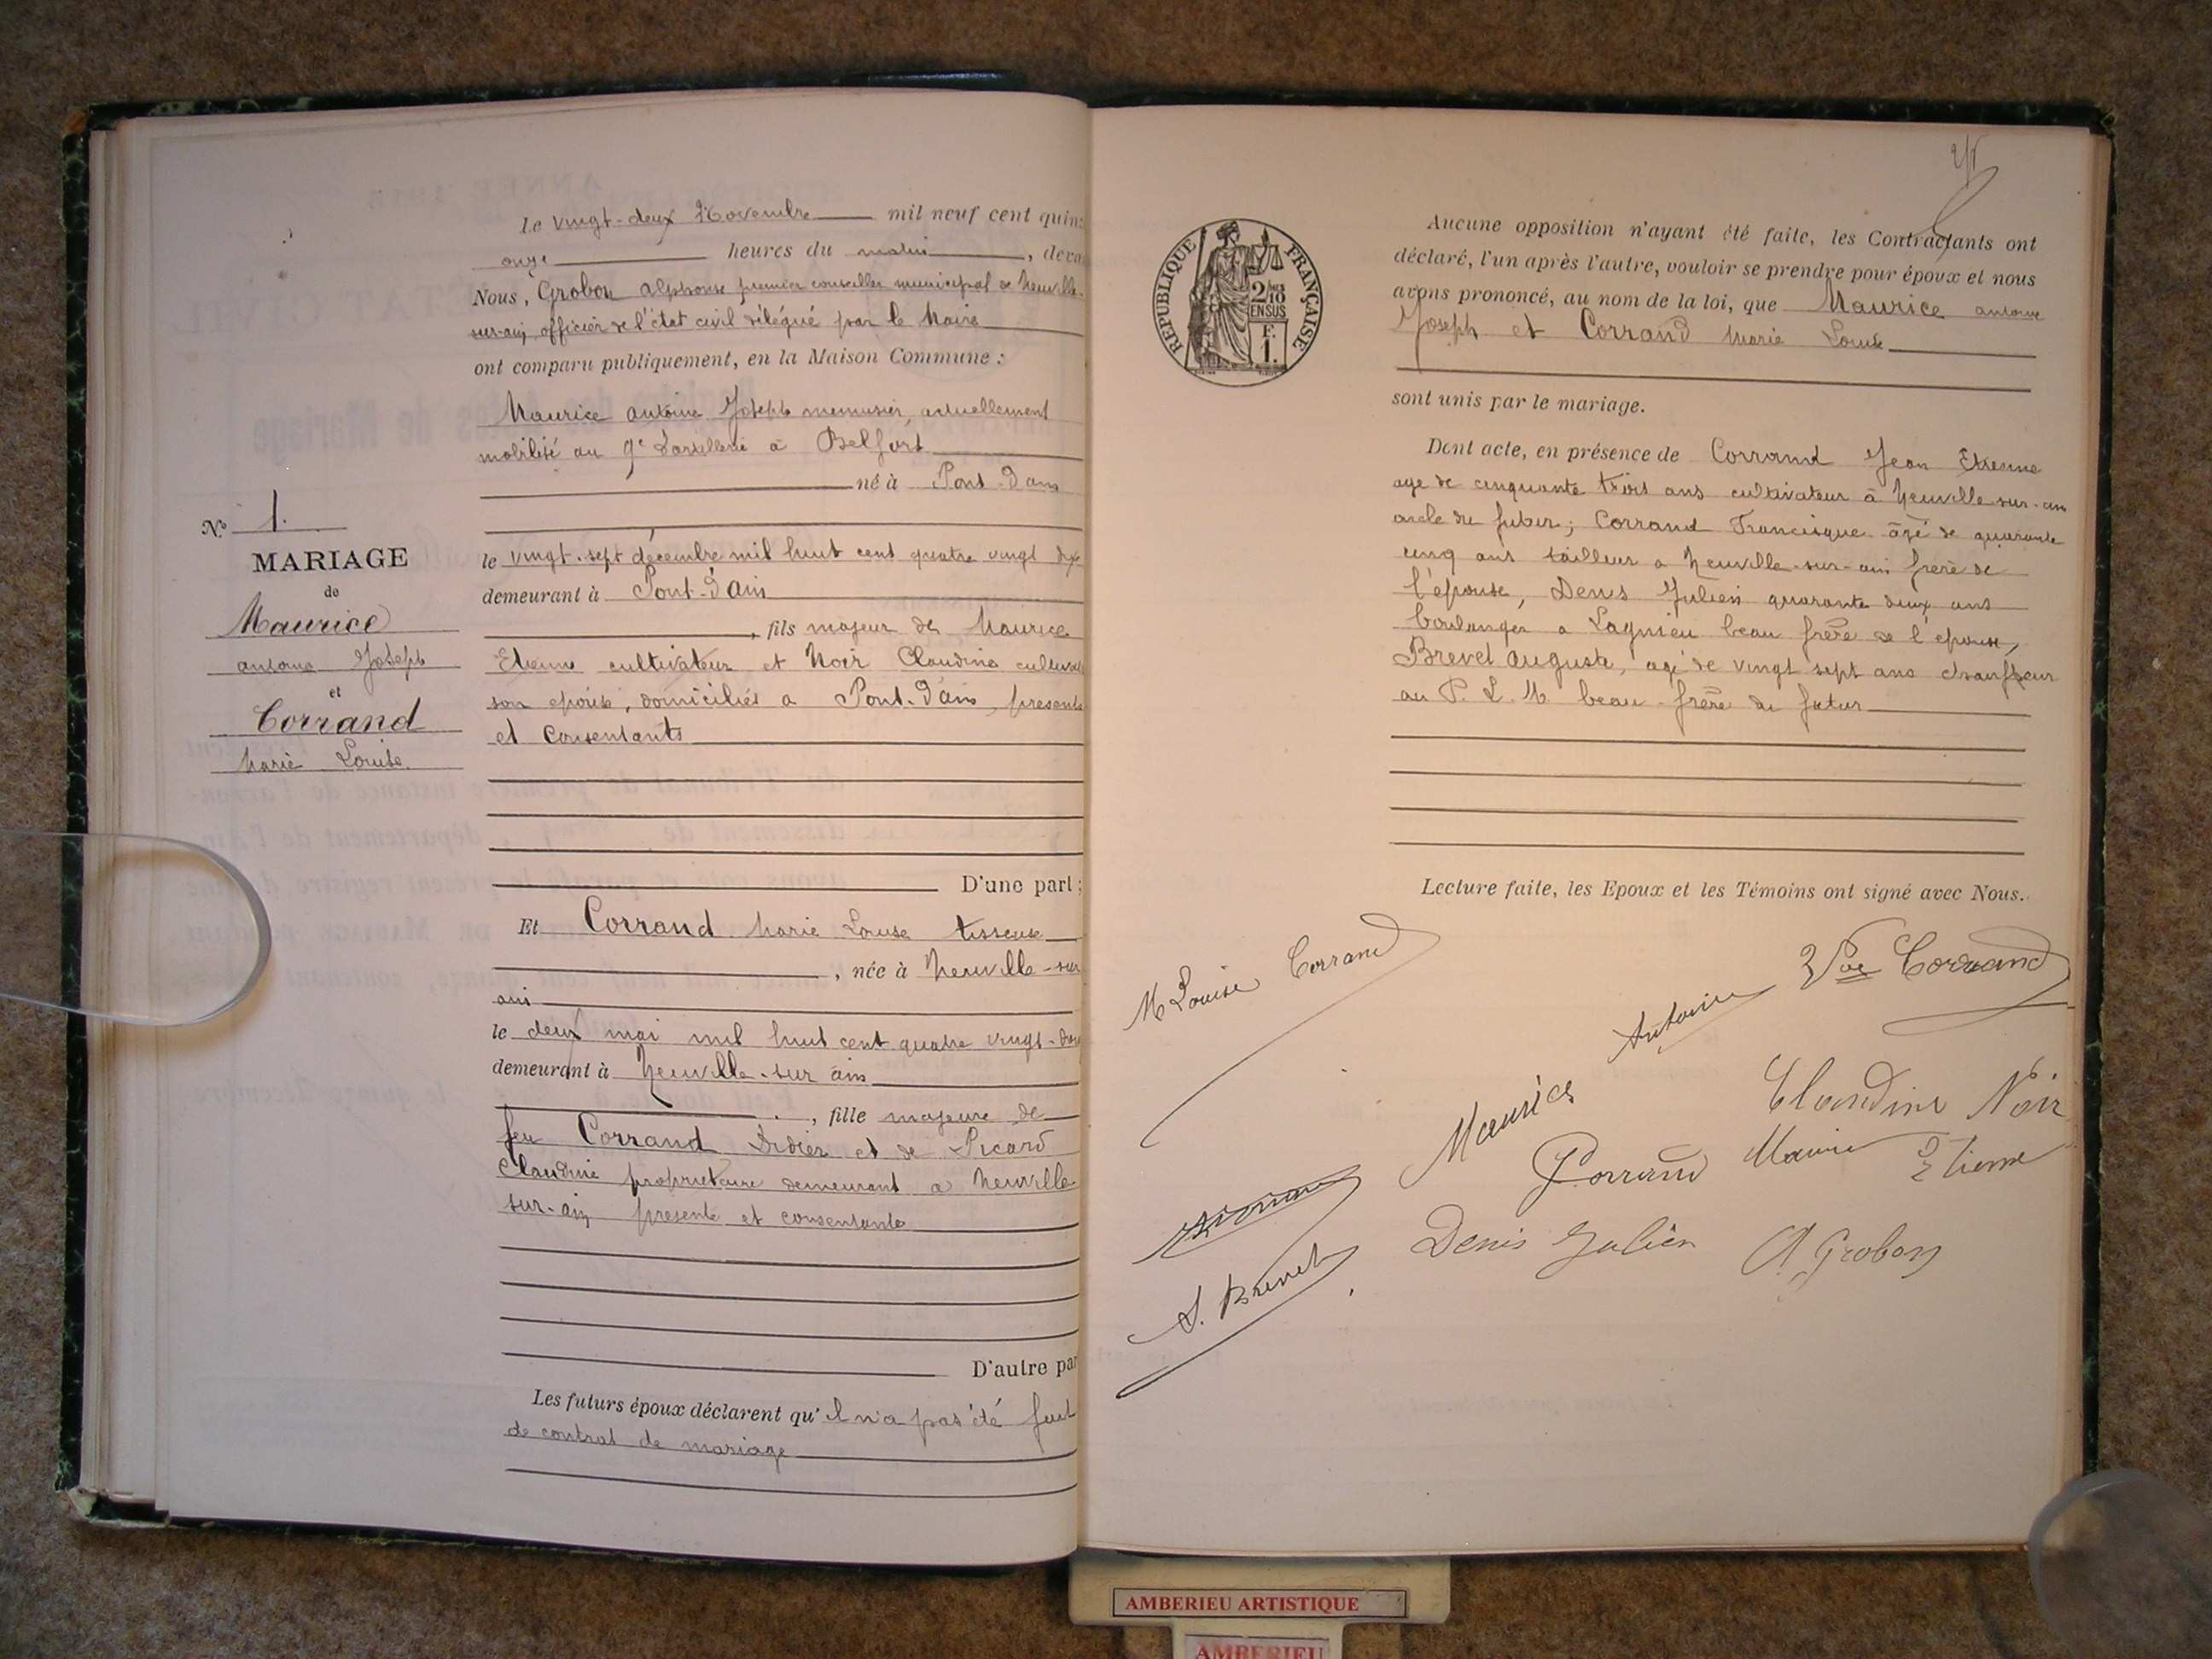 N.º 1.
MARIAGE
de
Maurice
antoine Joseph
et
Corrand
Marie Louise.
Le vingt-deux Novembre mil neuf cent quin
onze heures du matin, deva
Nous, Grobon alphonse premier conseiller municipal de Neuville-
sur-ain, officier de l'état civil délégué par le Maire
ont comparu publiquement, en la Maison Commune :
Maurice antoine Joseph menuisier, actuellement
mobilisé au 9e d'artillerie à Belfort
né à Pont-d'ain
le vingt-sept décembre mil huit cent quatre vingt dix
demeurant à Pont-d'ain
, fils majeur de Maurice
Etienne cultivateur et Noir Claudine
son épouse, domiciliés a Pont-d'ain, présents
et consentants
D'une part ;
Et Corrand Marie Louise tisseuse
, née à Neuville-sur
ain
le deux mai mil huit cent quatre vingt-
demeurant à Neuville-sur ain
, fille majeure de
feu Corrand Didier et de Picard
Claudine propriétaire demeurant a Neuville
sur-ain présente et consentante
D'autre par
Les futurs époux déclarent qu'il n'a pas été fait
de contrat de mariage
RÉPUBLIQUE FRANÇAISE
2/10
EN SUS
F.
1.
Aucune opposition n'ayant été faite, les Contractants ont
déclaré, l'un après l'autre, vouloir se prendre pour époux et nous
avons prononcé, au nom de la loi, que Maurice antoine
Joseph et Corrand Marie Louise
sont unis par le mariage.
Dont acte, en présence de Corrand Jean Etienne
age de cinquante trois ans cultivateur à Neuville-sur-ain
oncle du futur; Corrand Francisque âgé de quarante
cinq ans tailleur a Neuville-sur-ain frère de
l'épouse, Denis Julien quarante deux ans
boulanger a Lagnieu beau frère de l'epouse,
Brevet auguste, agé de vingt sept ans chauffeur
au P. L. M. beau-frère du futur
Lecture faite, les Epoux et les Témoins ont signé avec Nous.
M Louise Corrand
Vve Corrand
Antoine
Maurice
Claudine Noir
Corrand
Maurice Etienne
Denis Julien
A. Grobon
A. Brevet
AMBERIEU ARTISTIQUE
AMBERIEU